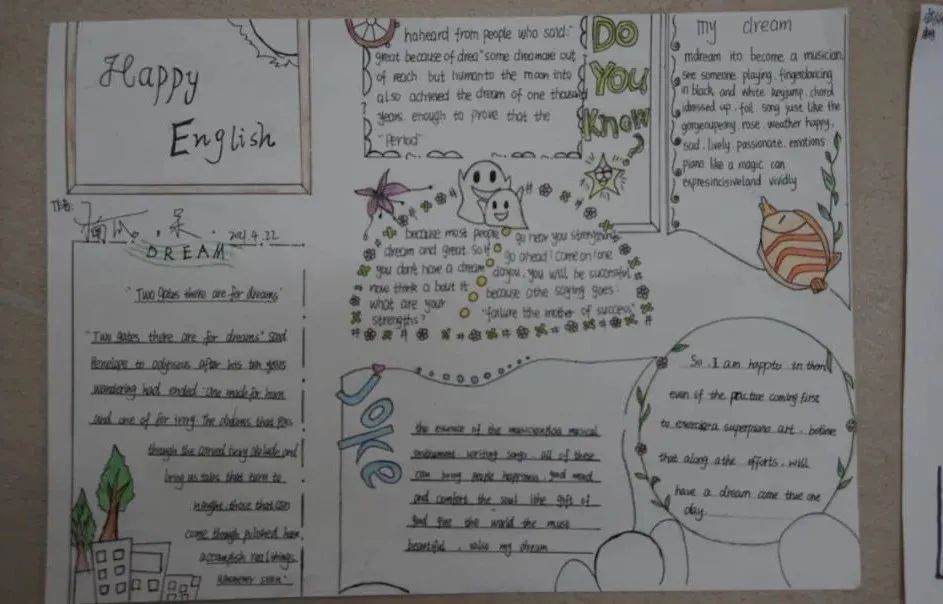 Happy
English
作者:
2021.4.22
DREAM
"Two gates there are for dreams"
"Two gates there are for dreams" said
Penelope to odysseus after his ten years
wandering had ended. One made for horn
and one of for ivory. The dreams that pass
through the carved ivory delude and
bring us tales that turn to
naught those that can
come though polished horn
accomplish real things
whenever seen."
haheard from people who said:"
great because of drea" some dreamare out
of reach but humanto the moon into
also achieved the dream of one thousand
years. enough to prove that the
"Period"
DO
YOU
Know
?
my dream
mdream ito become a musician
see someone playing. fingerdancing
in black and white keyjump. chord
idressed up. foil song just like the
gorgeoupeony. rose. weather happy.
sad. lively. passionate. emotions
piano like a magic can
espresincisiveland vividly
because most people
dream and great so if
you don't have a dream
now think a bout it
what are your
strengths?
go near you strengths
go ahead! come on! one
do you. you will be successful
because athe saying goes:
"failure the mother of success"
JOKE
the essence of the musician musical
instrument writing songs. all of these
can bring people happiness, good mood
and comfort the soul ithe gift of
god give the world the muse
beautiful. valso my dream
So. I am happto in there
even if the practice coming first
to exercisea superpiano art.
that along athe efforts. will
have a dream come true one
day.